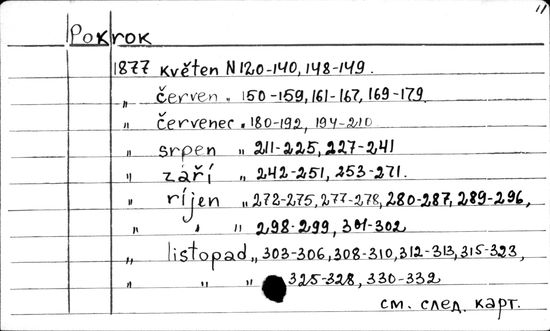 11
Pokrok
1877 květen N 120-140, 148-149.
„ červen „ 150-159, 161-167, 169-179
„ červenec „ 180-192, 194-210
„ srpen „ 211-225, 227-241
„ září „ 242-251, 253-271.
„ říjen „ 272-275, 277-278, 280-287, 289-296,
„ „ „ 298-299, 301-302
„ listopad „ 303-306, 308-310, 312-313, 315-323,
„ „ „ 325-328, 330-332
см. след. карт.